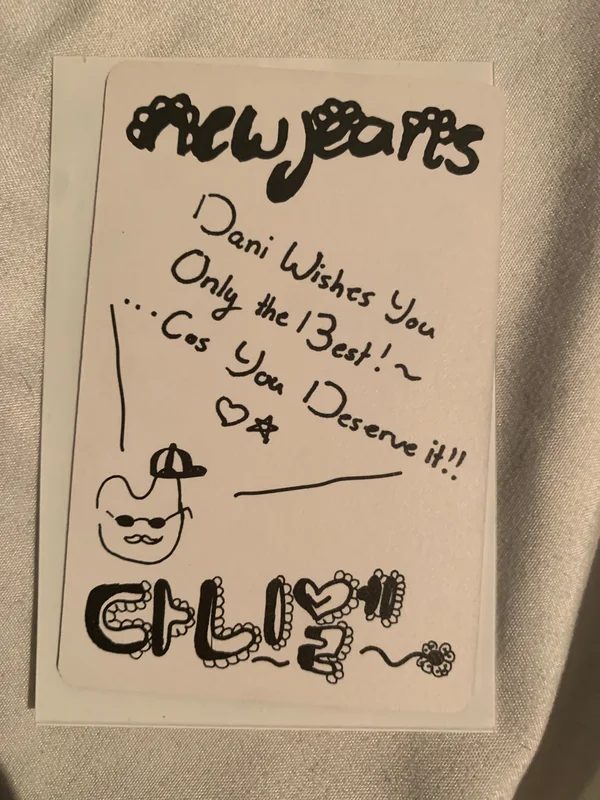 new years
Dani Wishes You
Only the Best!~
...Cos You Deserve it!!